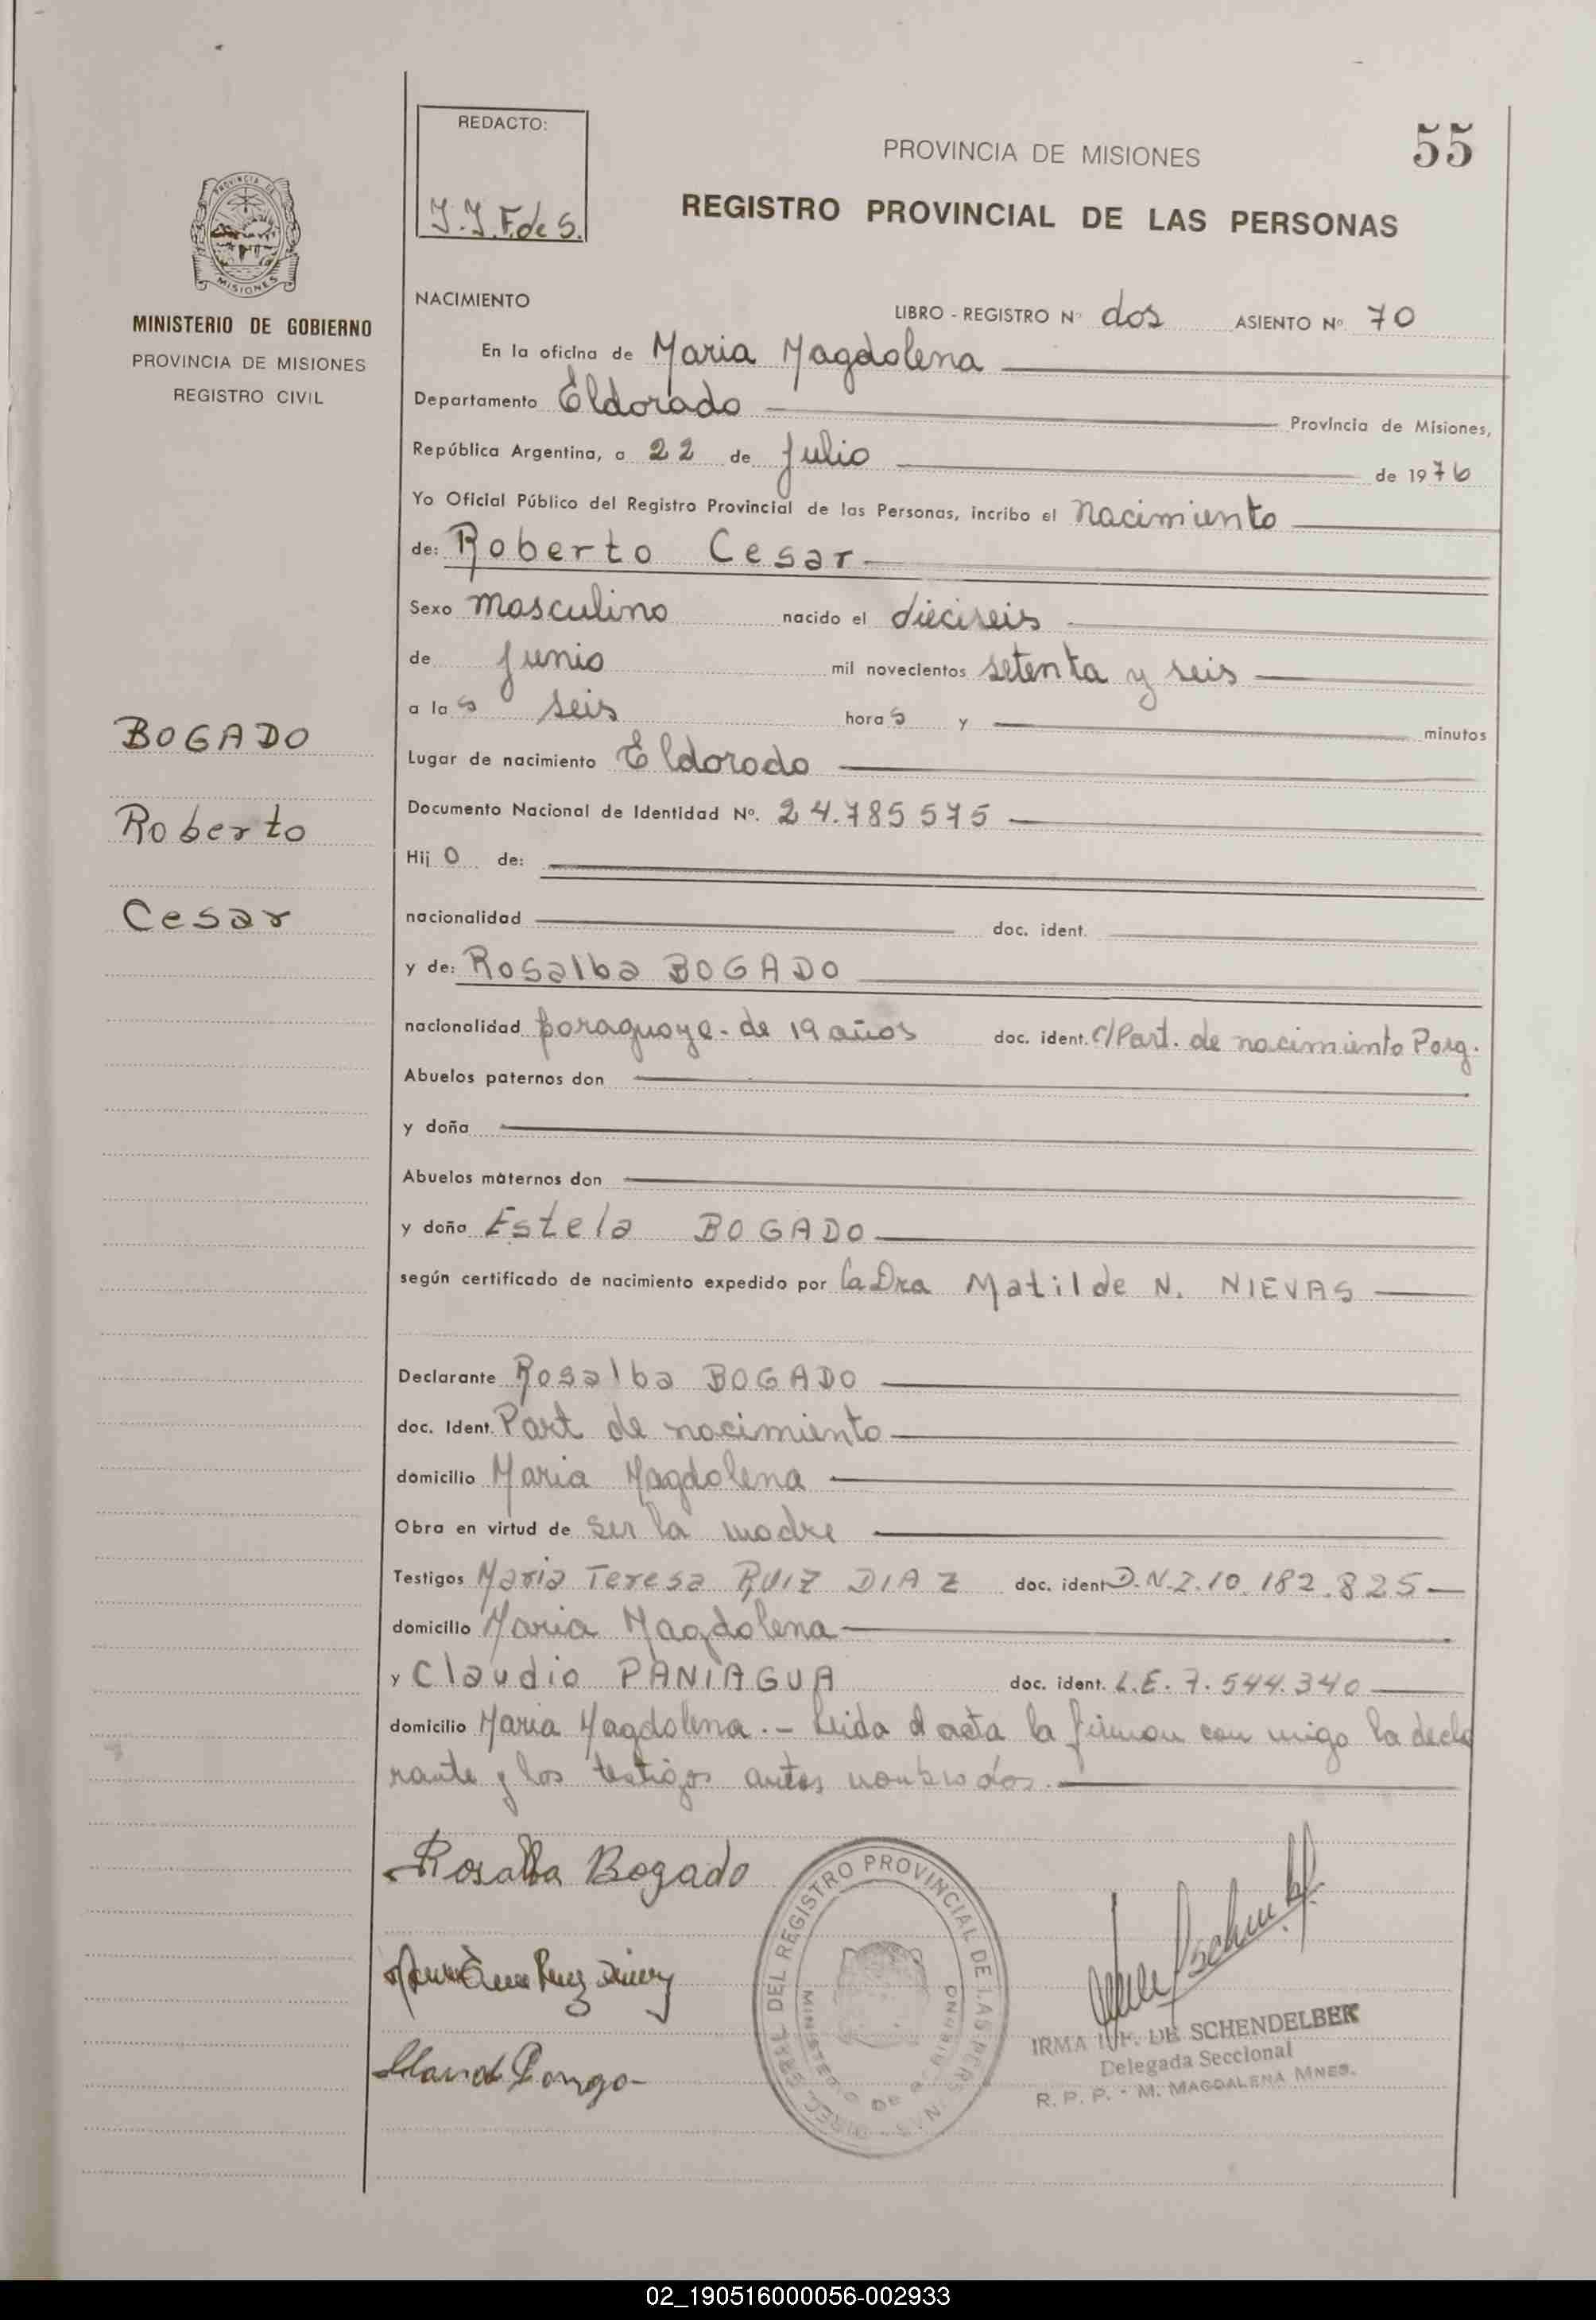 REDACTO:
J.J.F.de S.
55
PROVINCIA DE MISIONES
REGISTRO PROVINCIAL DE LAS PERSONAS
PROVINCIA DE
MISIONES
MINISTERIO DE GOBIERNO
PROVINCIA DE MISIONES
REGISTRO CIVIL
BOGADO
Roberto
Cesar
NACIMIENTO
LIBRO - REGISTRO Nº dos ASIENTO Nº 70
En la oficina de Maria Magdalena
Departamento Eldorado Provincia de Misiones,
República Argentina, a 22 de Julio de 1976
Yo Oficial Público del Registro Provincial de las Personas, incribo el nacimiento
de: Roberto Cesar
Sexo masculino nacido el dieciseis
de Junio mil novecientos setenta y seis
a las seis horas y minutos
Lugar de nacimiento Eldorado
Documento Nacional de Identidad Nº. 24.785575
Hijo de:
nacionalidad doc. ident.
y de: Rosalba BOGADO
nacionalidad paraguaya - de 19 años doc. ident. c/Part. de nacimiento Parg.
Abuelos paternos don
y doña
Abuelos maternos don
y doña Estela BOGADO
según certificado de nacimiento expedido por la Dra Matilde N. NIEVAS
Declarante Rosalba BOGADO
doc. Ident. Part de nacimiento
domicilio Maria Magdalena
Obra en virtud de ser la madre
Testigos Maria Teresa RUIZ DIAZ doc. ident D.N.I. 10.182.825
domicilio Maria Magdalena
y Claudio PANIAGUA doc. ident. L.E. 7.544.340
domicilio Maria Magdalena. - Leida el acta la firman con migo la decla
rante y los testigos antes nombrados.
Rosalba Bogado
DIREC. GRAL. DEL REGISTRO PROVINCIAL DE LAS PERSONAS
MINISTERIO DE GOBIERNO
IRMA DE SCHENDELBEK
Delegada Seccional
R. P. P. - M. MAGDALENA MNES.
02_190516000056-002933